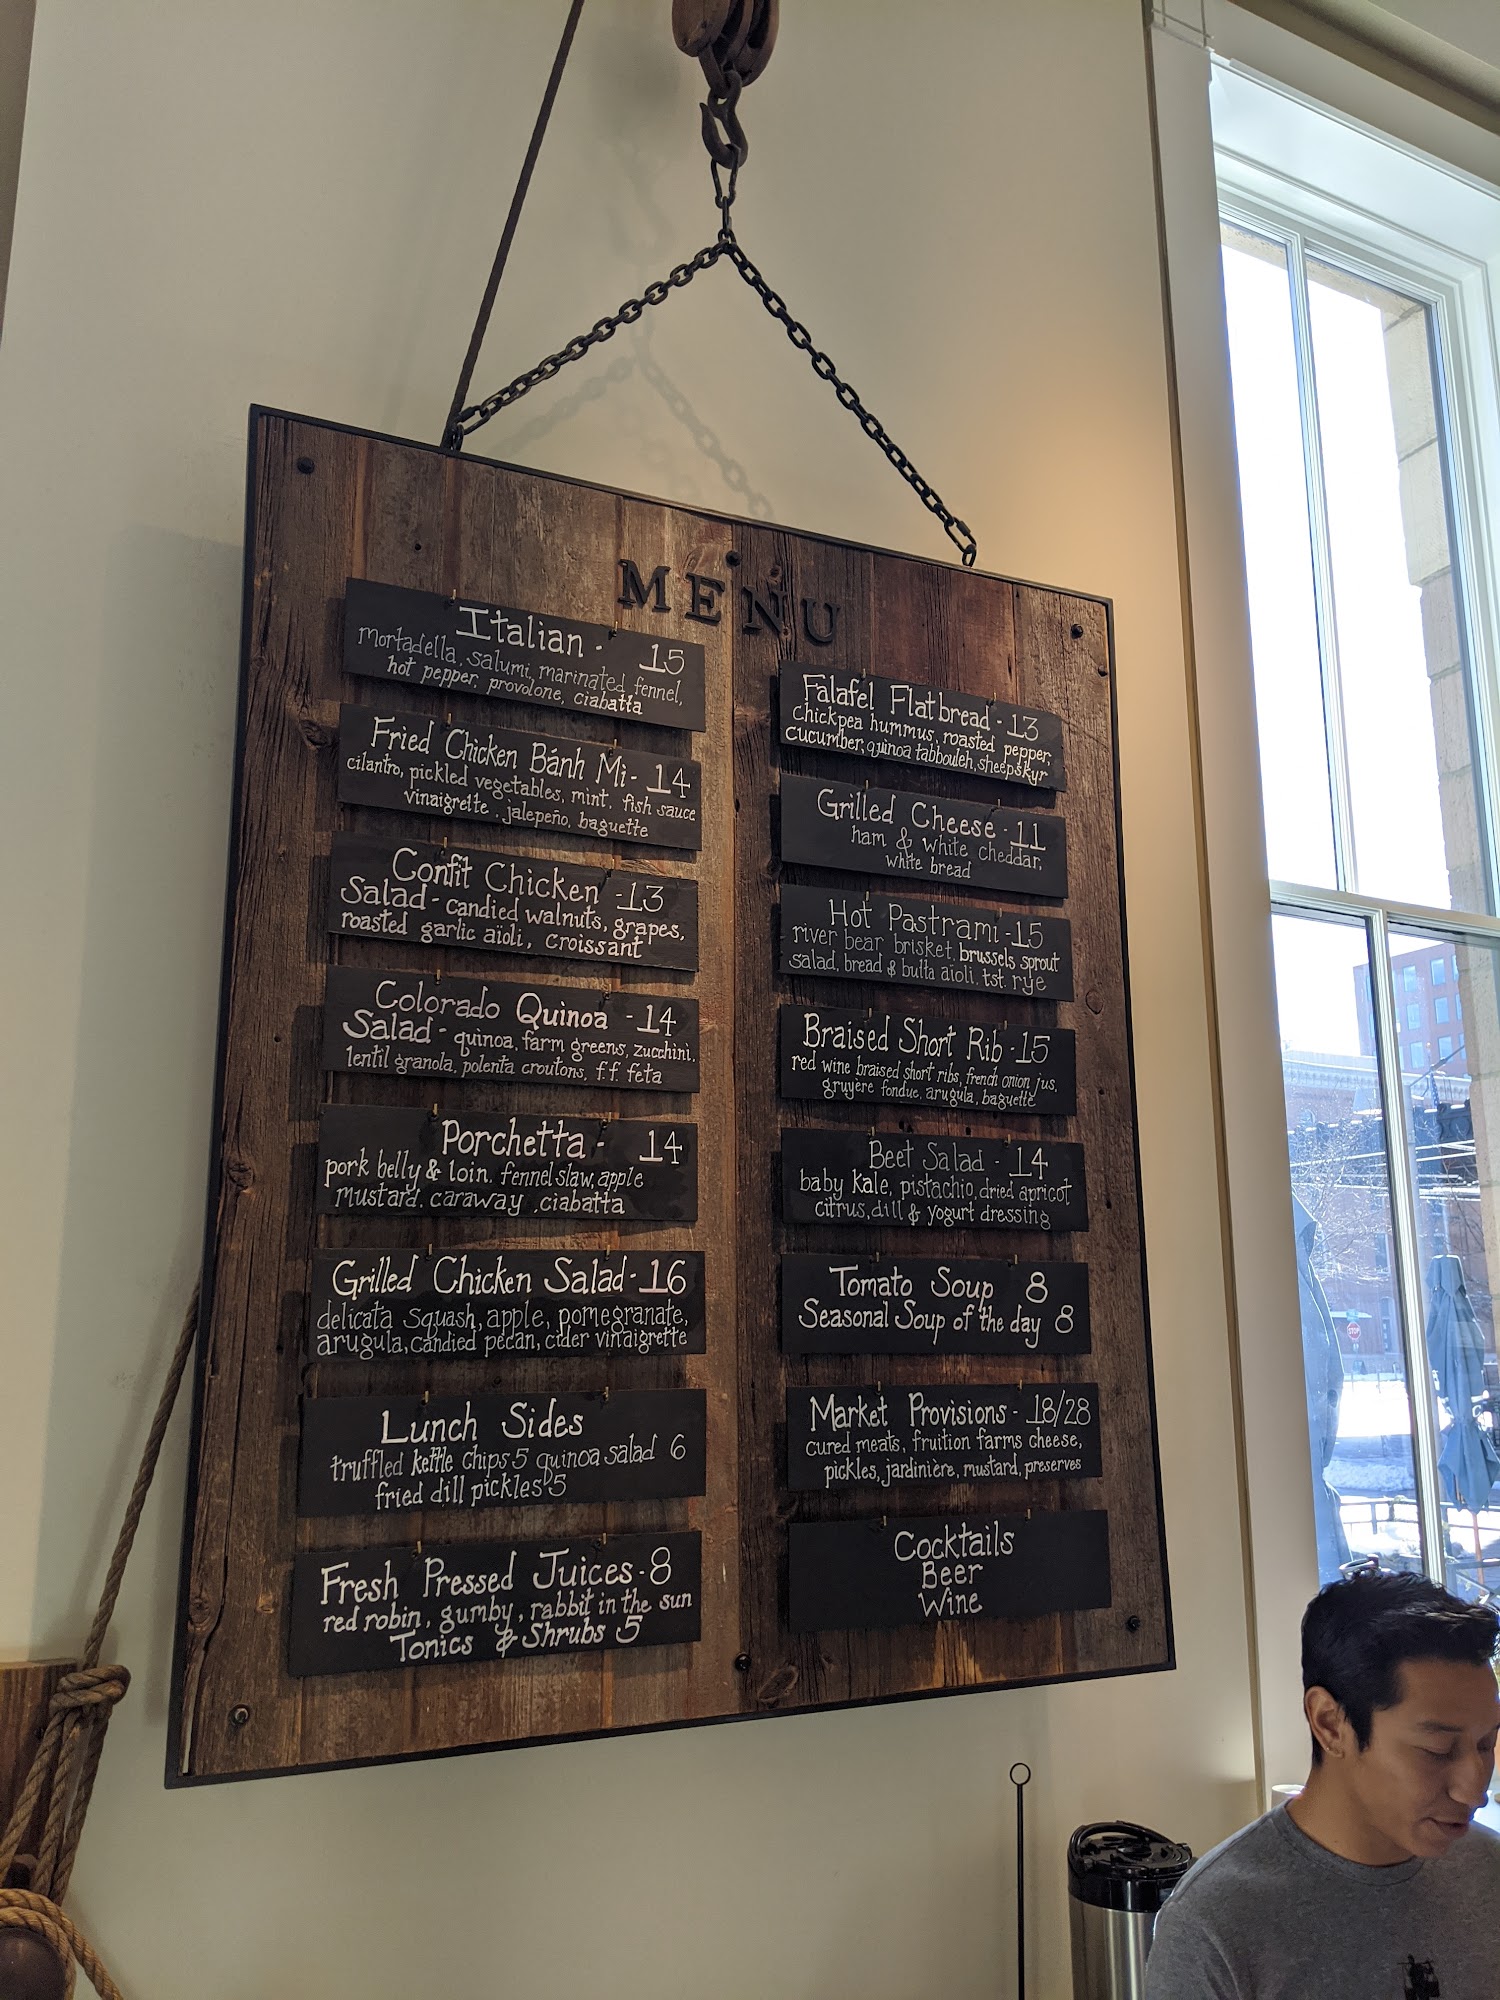 MENU
Italian - 15
mortadella, salumi, marinated fennel,
hot pepper, provolone, ciabatta
Fried Chicken Bánh Mi - 14
cilantro, pickled vegetables, mint, fish sauce
vinaigrette, jalepeño, baguette
Confit Chicken - 13
Salad - candied walnuts, grapes,
roasted garlic aïoli, croissant
Colorado Quinoa - 14
Salad - quinoa, farm greens, zucchini,
lentil granola, polenta croutons, f.f. feta
Porchetta - 14
pork belly & loin, fennel slaw, apple
mustard, caraway, ciabatta
Grilled Chicken Salad - 16
delicata squash, apple, pomegranate,
arugula, candied pecan, cider vinaigrette
Lunch Sides
truffled kettle chips 5 quinoa salad 6
fried dill pickles - 5
Fresh Pressed Juices - 8
red robin, gumby, rabbit in the sun
Tonics & Shrubs 5
Falafel Flatbread - 13
chickpea hummus, roasted pepper,
cucumber, quinoa tabbouleh, sheep skyr
Grilled Cheese - 11
ham & white cheddar,
white bread
Hot Pastrami - 15
river bear brisket, brussels sprout
salad, bread & butta aioli, tst. rye
Braised Short Rib - 15
red wine braised short ribs, french onion jus,
gruyère fondue, arugula, baguette
Beet Salad - 14
baby kale, pistachio, dried apricot
citrus, dill & yogurt dressing
Tomato Soup 8
Seasonal Soup of the day 8
Market Provisions - 18/28
cured meats, fruition farms cheese,
pickles, jardinière, mustard, preserves
Cocktails
Beer
Wine
STOP